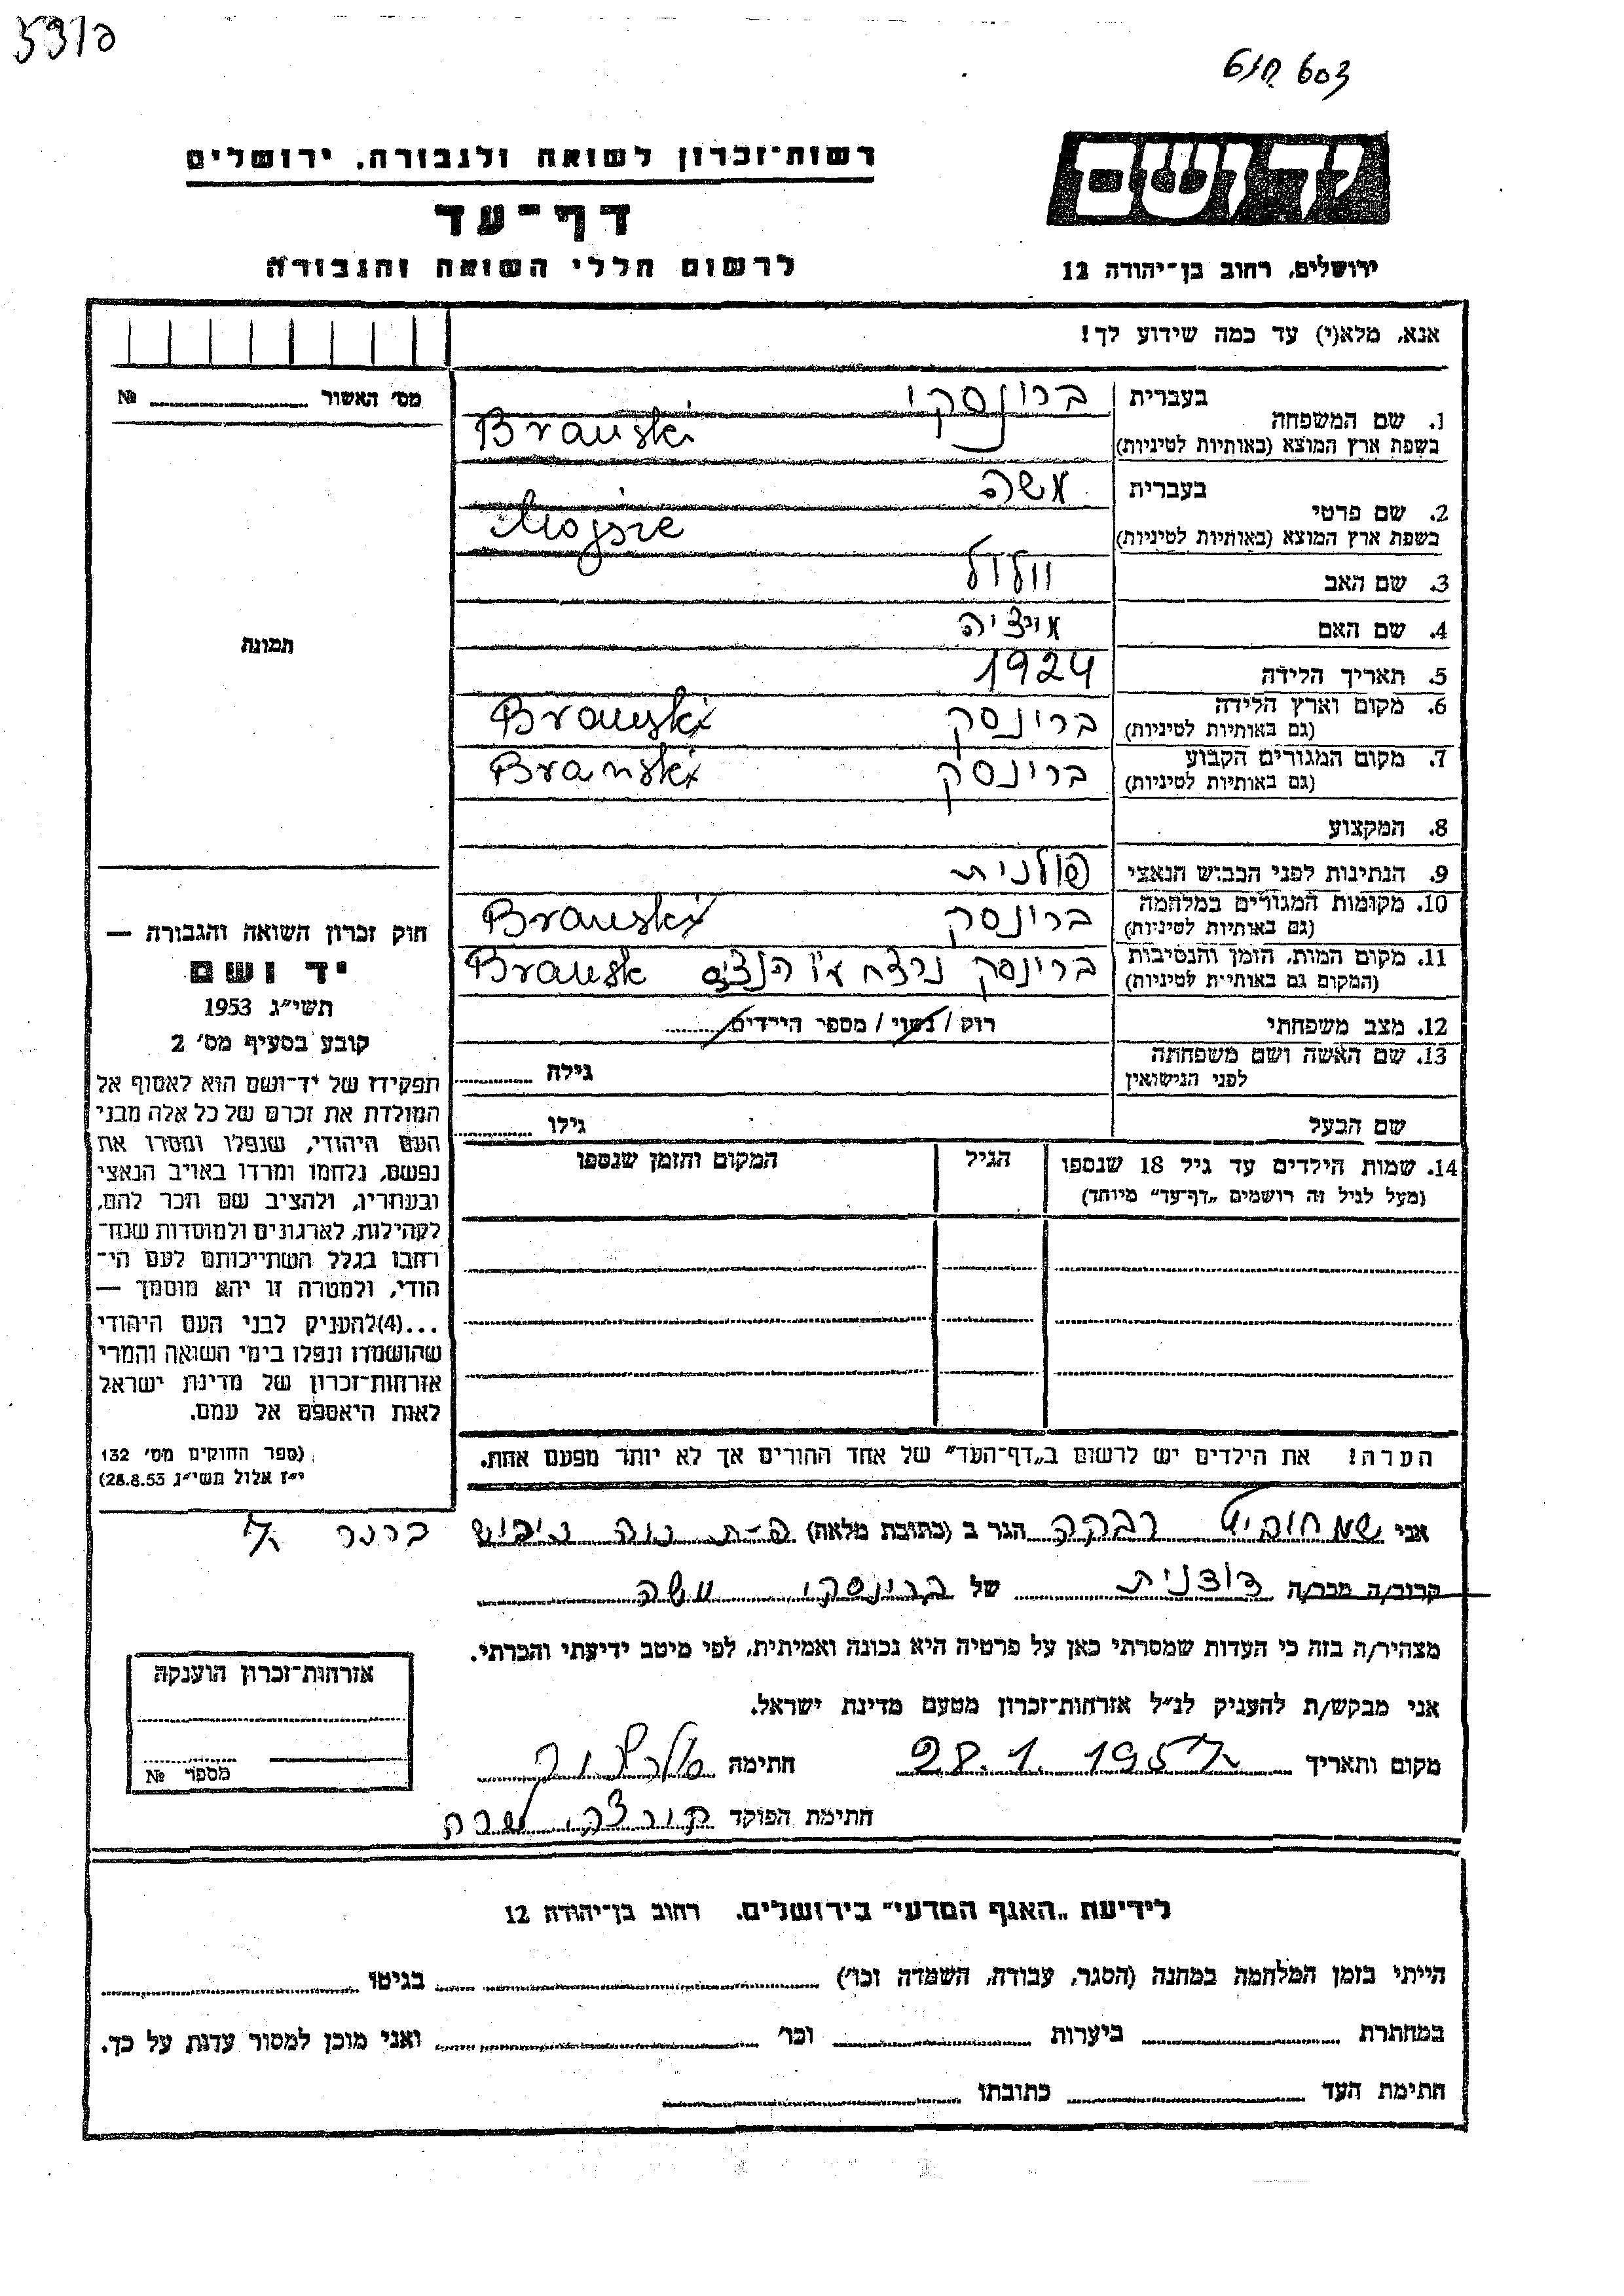 רשות־זכרון לשואה ולגבורה, ירושלים
דף־עד
לרשום חללי השואה והגבורה
יד ושם
ירושלים, רחוב בן־יהודה 12
אנא, מלא(י) עד כמה שידוע לך!
מס' האשור №
תמונה
1. שם המשפחה בעברית ברונסקי
בשפת ארץ המוצא (באותיות לטיניות) Branski
2. שם פרטי בעברית משה
בשפת ארץ המוצא (באותיות לטיניות) Mojsze
3. שם האב וולול
4. שם האם
5. תאריך הלידה 1924
6. מקום וארץ הלידה ברינסק Branski
(גם באותיות לטיניות)
7. מקום המגורים הקבוע ברינסק Branski
(גם באותיות לטיניות)
8. המקצוע
9. הנתינות לפני הכבוש הנאצי פולנית
10. מקומות המגורים במלחמה ברינסק Branski
(גם באותיות לטיניות)
11. מקום המות, הזמן והנסיבות ברינסק נרצח ע"י הנצים Bransk
(המקום גם באותיות לטיניות)
12. מצב משפחתי רוק / נשוי / מספר הילדים
13. שם האשה ושם משפחתה גילה
לפני הנישואין
שם הבעל גילו
14. שמות הילדים עד גיל 18 שנספו הגיל המקום והזמן שנספו
(מעל לגיל זה רושמים „דף־עד" מיוחד)
חוק זכרון השואה והגבורה —
יד ושם
תשי"ג 1953
קובע בסעיף מס' 2
תפקידו של יד־ושם הוא לאסוף אל
המולדת את זכרם של כל אלה מבני
העם היהודי, שנפלו ומסרו את
נפשם, נלחמו ומרדו באויב הנאצי
ובעוזריו, ולהציב שם וזכר להם,
לקהילות, לארגונים ולמוסדות שנח־
רבו בגלל השתייכותם לעם הי־
הודי, ולמטרה זו יהא מוסמך —
...(4)להעניק לבני העם היהודי
שהושמדו ונפלו בימי השואה והמרי
אזרחות־זכרון של מדינת ישראל
לאות היאספם אל עמם.
(ספר החוקים מס' 132
י"ז אלול תשי"ג 28.8.53)
הערה! את הילדים יש לרשום ב„דף־העד" של אחד ההורים אך לא יותר מפעם אחת.
אני רבקה הגר ב (כתובת מלאה) פ-ת נוה ברנר
קרוב/ה מכר/ה דודנית של ברינסקי משה
מצהיר/ה בזה כי העדות שמסרתי כאן על פרטיה היא נכונה ואמיתית, לפי מיטב ידיעתי והכרתי.
אני מבקש/ת להעניק לנ"ל אזרחות־זכרון מטעם מדינת ישראל.
מקום ותאריך 28.1.1957 חתימה
חתימת הפוקד שרה
אזרחות־זכרון הוענקה
מספר №
לידיעת „האגף המדעי" בירושלים. רחוב בן־יהודה 12
הייתי בזמן המלחמה במחנה (הסגר, עבודה, השמדה וכו') בגיטו
במחתרת ביערות וכו' ואני מוכן למסור עדות על כך.
חתימת העד כתובתו